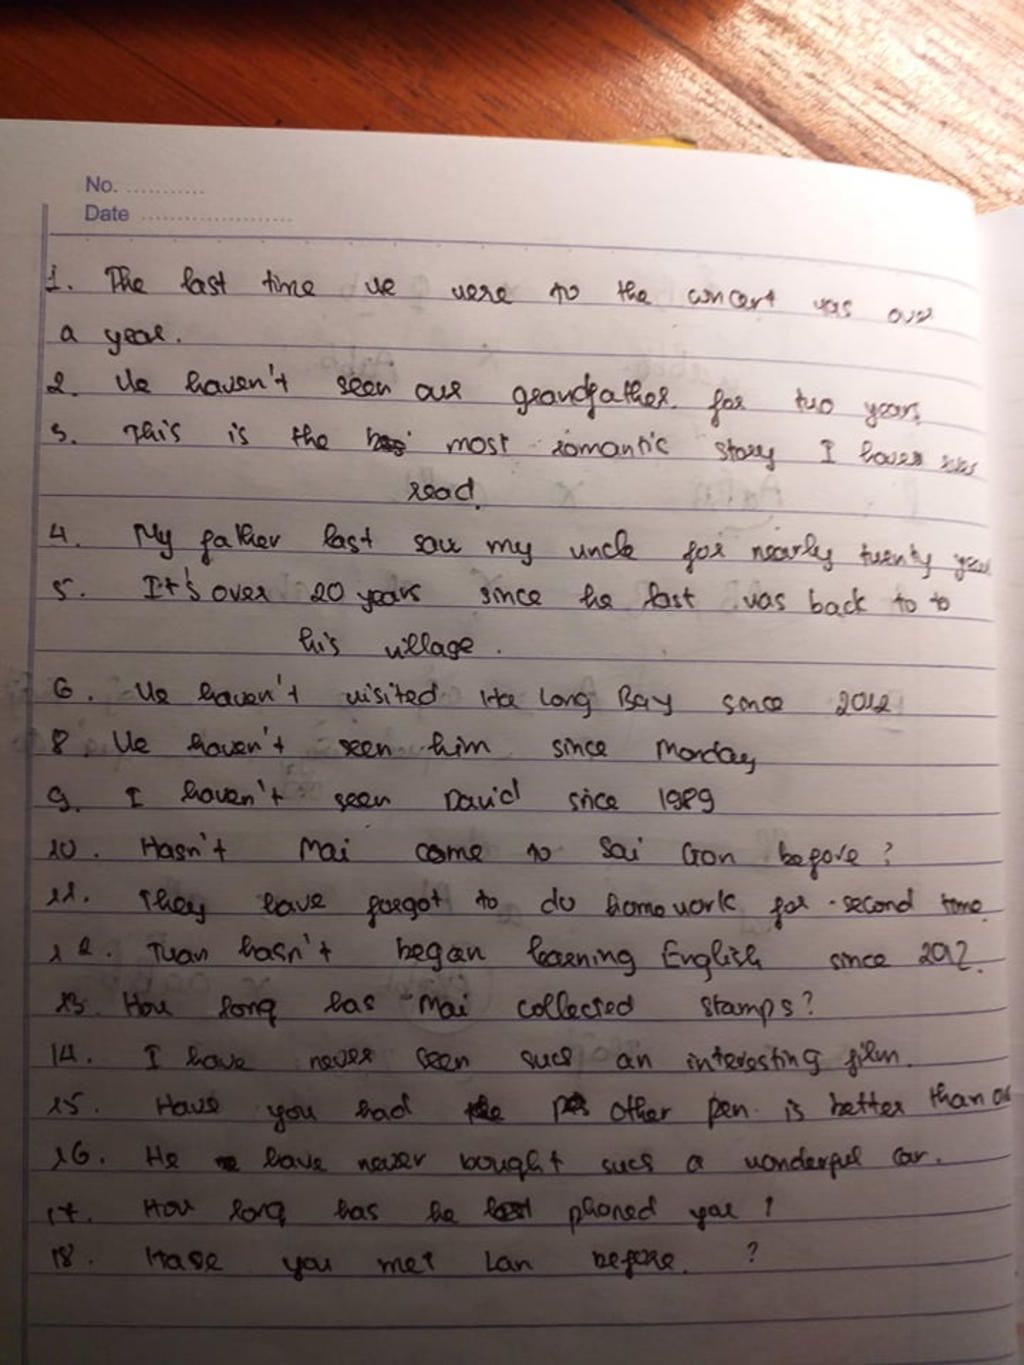 No. ............
Date ......................
1. The last time we were to the concert was over
a year.
2. We haven't seen our grandfather for two years
3. This is the most romantic story I have
read.
4. My father last saw my uncle for nearly twenty year
5. It's over 20 years since he last was back to to
his village.
6. We haven't visited Ha Long Bay since 2012
8 We haven't seen him since Monday
9. I haven't seen David since 1989
10. Hasn't Mai come to Sai Gon before?
11. They have forgot to do homework for second time.
12. Tuan hasn't began learning English since 2012.
13. How long has Mai collected stamps?
14. I have never seen such an interesting film.
15. Have you had the other pen is better than
16. He have never bought such a wonderful car.
17. How long has he last phoned you ?
18. Have you met Lan before. ?